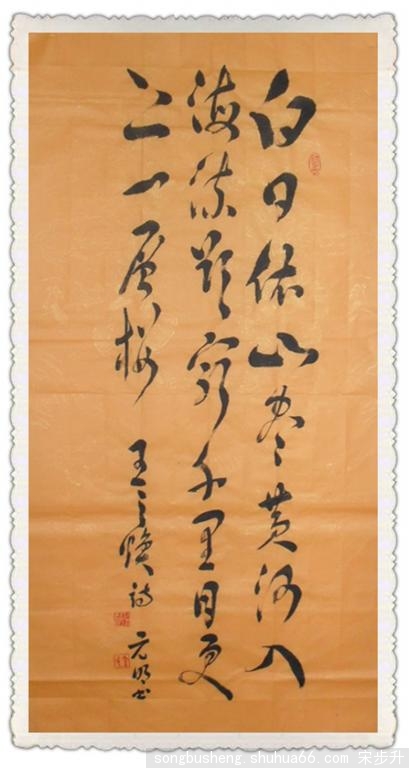 白日依山尽黄河入
海流欲穷千里目更
上一层楼
王之焕诗 元明书
songbusheng.shuhua66.com 宋步升